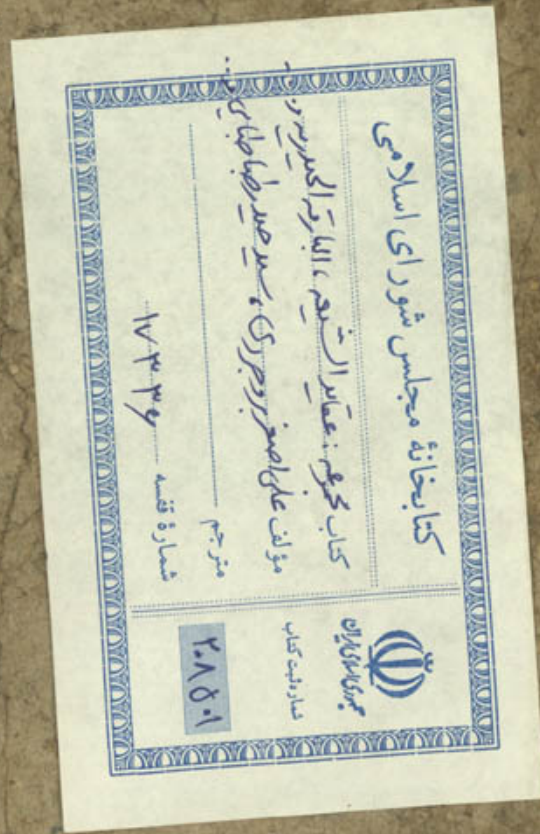 کتابخانهٔ مجلس شورای اسلامی
کتاب مجموعه: عقاید الشیعه، البارقة الحیدریه و...
مؤلف علی اصغر بروجردی، سید حیدر طباطبایی و...
مترجم
شمارهٔ قفسه ۱۷۳۳۶
جمهوری اسلامی ایران
شماره ثبت کتاب
۲۰۸۵۰۱